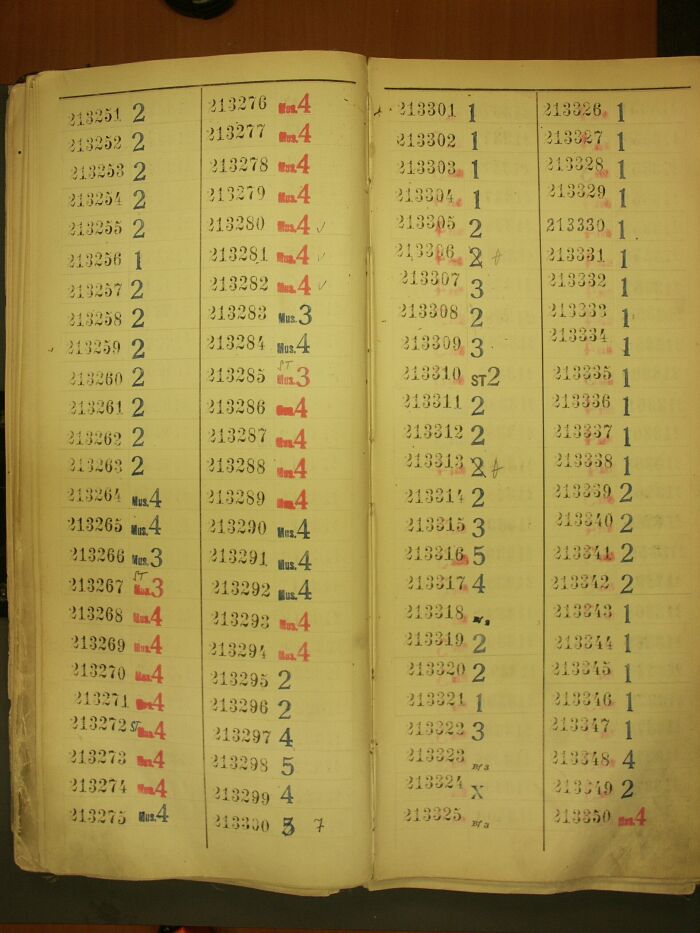 213251 2
213252 2
213253 2
213254 2
213255 2
213256 1
213257 2
213258 2
213259 2
213260 2
213261 2
213262 2
213263 2
213264 Mus.4
213265 Mus.4
213266 Mus.3
ST
213267 Mus.3
213268 Mus.4
213269 Mus.4
213270 Mus.4
213271 Mus.4
213272 ST Mus.4
213273 Mus.4
213274 Mus.4
213275 Mus.4
213276 Mus.4
213277 Mus.4
213278 Mus.4
213279 Mus.4
213280 Mus.4 ✓
213281 Mus.4 ✓
213282 Mus.4 ✓
213283 Mus.3
213284 Mus.4
ST
213285 Mus.3
213286 Mus.4
213287 Mus.4
213288 Mus.4
213289 Mus.4
213290 Mus.4
213291 Mus.4
213292 Mus.4
213293 Mus.4
213294 Mus.4
213295 2
213296 2
213297 4
213298 5
213299 4
213300 7
213301 1
213302 1
213303 1
213304 1
213305 2
213306 2
213307 3
213308 2
213309 3
213310 ST2
213311 2
213312 2
213313 2
213314 2
213315 3
213316 5
213317 4
213318
213319 2
213320 2
213321 1
213322 3
213323 Bf 3
213324 X
213325 Bf 3
213326 1
213327 1
213328 1
213329 1
213330 1
213331 1
213332 1
213333 1
213334 1
213335 1
213336 1
213337 1
213338 1
213339 2
213340 2
213341 2
213342 2
213343 1
213344 1
213345 1
213346 1
213347 1
213348 4
213349 2
213350 Mus.4